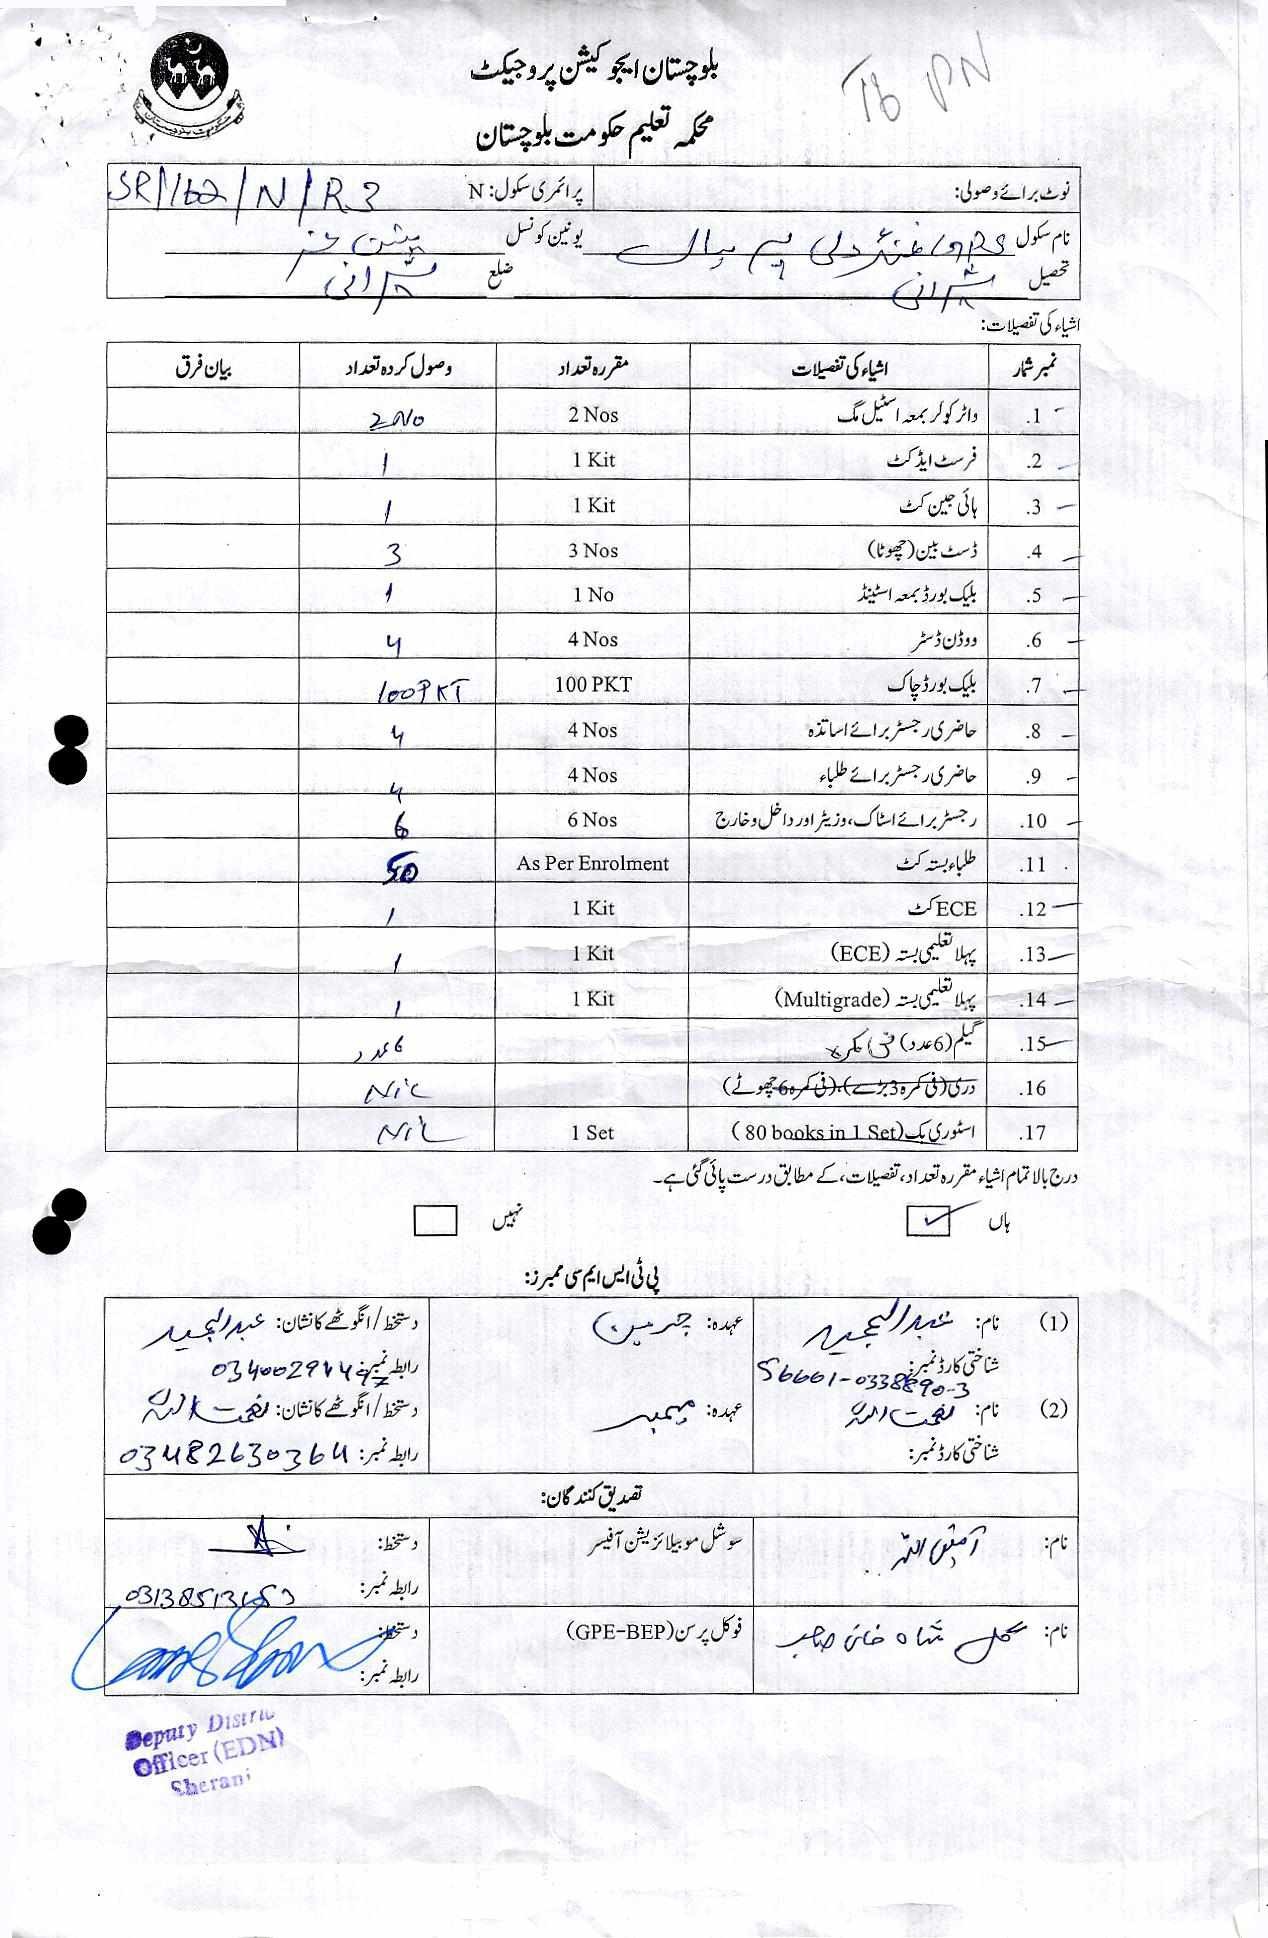 بلوچستان ایجوکیشن پروجیکٹ
محکمہ تعلیم حکومت بلوچستان
Tb PN
نوٹ برائے وصولی: پرائمری سکول: N SR/162/N/R3
نام سکول یونین کونسل
تحصیل شیرانی ضلع شیرانی
اشیاء کی تفصیلات:
نمبر شمار اشیاء کی تفصیلات مقررہ تعداد وصول کردہ تعداد بیان فرق
1. واٹر کولر بمعہ اسٹیل مگ 2 Nos 2 No
2. فرسٹ ایڈ کٹ 1 Kit 1
3. ہائی جین کٹ 1 Kit 1
4. ڈسٹ بین (چھوٹا) 3 Nos 3
5. بلیک بورڈ بمعہ اسٹینڈ 1 No 1
6. ووڈن ڈسٹر 4 Nos 4
7. بلیک بورڈ چاک 100 PKT 100 PKT
8. حاضری رجسٹر برائے اساتذہ 4 Nos 4
9. حاضری رجسٹر برائے طلباء 4 Nos 4
10. رجسٹر برائے اسٹاک، وزیٹر اور داخل و خارج 6 Nos 6
11. طلباء بستہ کٹ As Per Enrolment 50
12. ECE کٹ 1 Kit 1
13. پہلا تعلیمی بستہ (ECE) 1 Kit 1
14. پہلا تعلیمی بستہ (Multigrade) 1 Kit 1
15. گیلم (6 عدد) فی کمرہ 6 عدد
16. دری (فی کمرہ 3 بڑے)، (فی کمرہ 6 چھوٹے) Nil
17. اسٹوری بک (80 books in 1 Set) 1 Set Nil
درج بالا تمام اشیاء مقررہ تعداد، تفصیلات، کے مطابق درست پائی گئی ہے۔
ہاں ✓ نہیں
پی ٹی ایس ایم سی ممبرز:
(1) نام: عبدالمجید عہدہ: چرمین دستخط / انگوٹھے کا نشان: عبدالمجید
شناختی کارڈ نمبر: 56601-0338890-3 رابطہ نمبر:
(2) نام: نعمت اللہ عہدہ: ممبر دستخط / انگوٹھے کا نشان: نعمت اللہ
شناختی کارڈ نمبر: رابطہ نمبر: 03482630364
تصدیق کنندگان:
نام: سوشل موبیلائزیشن آفیسر دستخط:
رابطہ نمبر:
نام: گل شاہ خان صاحب فوکل پرسن (GPE-BEP) دستخط:
رابطہ نمبر:
Deputy District
Officer (EDN)
Sherani